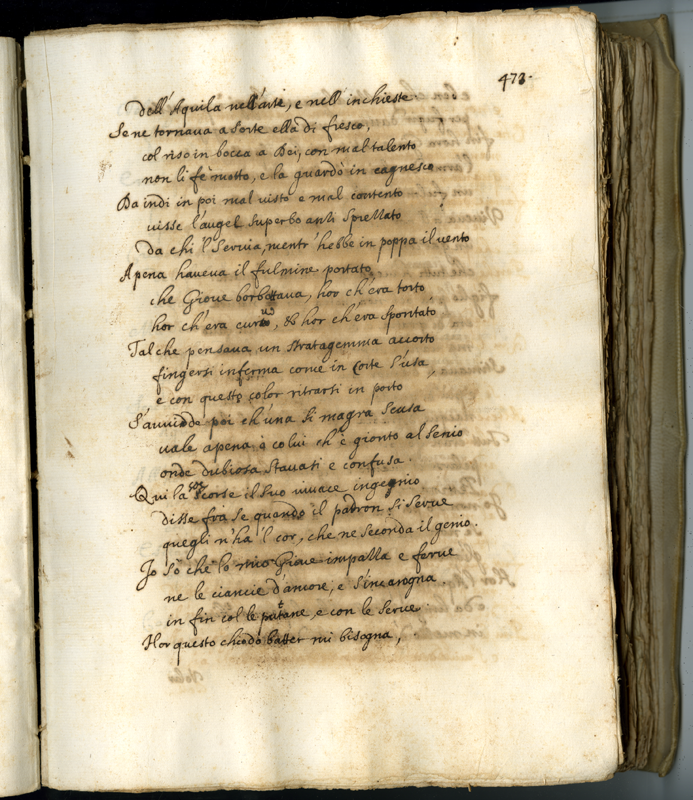 473.
dell'Aquila nell'arte, e nell'inchieste
Se ne tornava a sorte ella di fresco,
col riso in bocca a Dei, con mal talento
non li fe motto, e la guardò in cagnesco
Da indi in poi mal visto e mal contento
visse l'augel superbo anti sprellato
da chi 'l servia, mentr'hebbe in poppa il vento
A pena haveva il fulmine portato
che Giove borbottava, hor ch'era torto
hor ch'era curto, & hor ch'era spontato
Tal che pensava un stratagemma accorto
fingersi inferma come in Corte s'usa
e con questo color ritrarsi in porto
S'avvidde poi ch'una si magra scusa
vale apena à colui ch'è gionto al senio
onde dubiosa stavasi e confusa.
Qui la soccorse il suo vivace ingegnio
disse fra se quando il padron si serve
quegli n'ha 'l cor, che ne seconda il genio.
Io sò che lo mio Giove impalla e ferve
ne le ciancie d'amore, e s'incarogna.
in fin col le puttane, e con le serve.
Hor questo chiodo batter mi bisogna,